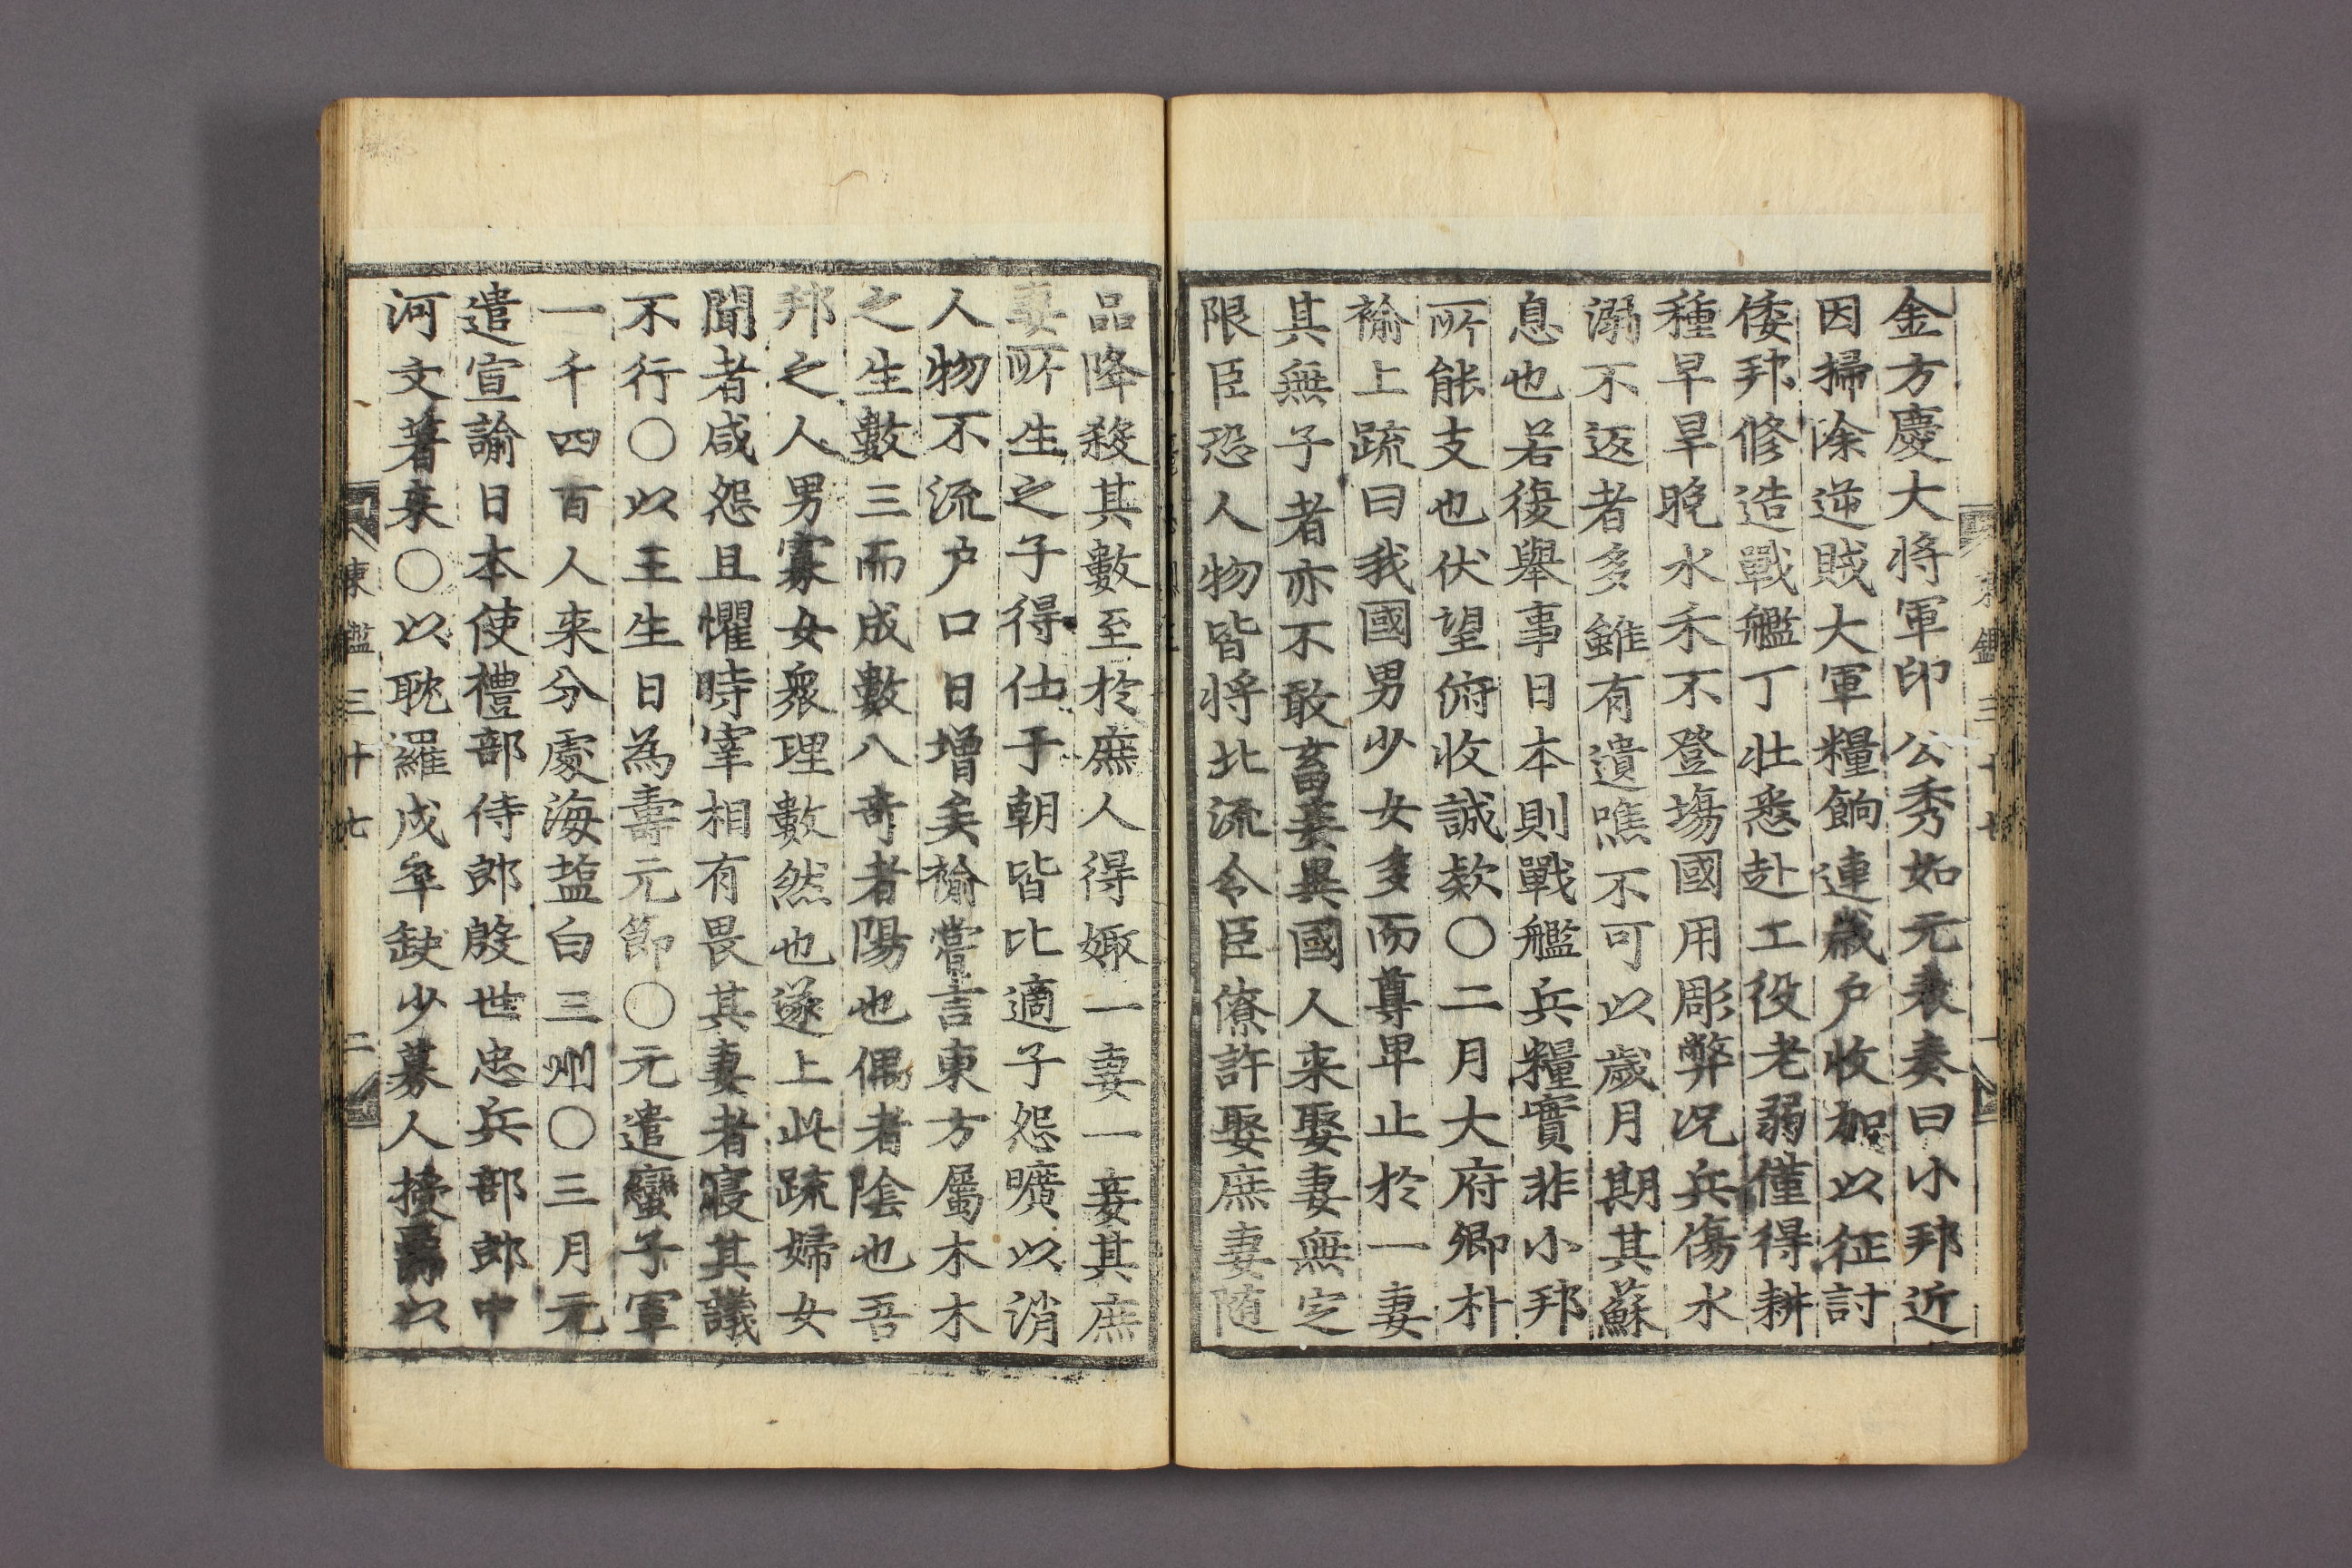 金方慶大将軍印公秀如元表奏曰小邦近
因掃除逆賊大軍糧餉連歲户收加以征討
倭邦修造戰艦丁壮悉赴工役老弱僅得耕
種早旱晚水禾不登場國用彫弊况兵傷水
溺不返者多雖有遺噍不可以歲月期其蘇
息也若復舉事日本則戰艦兵糧實非小邦
所能支也伏望俯收誠欵〇二月大府卿朴
褕上疏曰我國男少女多而尊卑止於一妻
其無子者亦不敢畜妾異國人来娶妻無定
限臣恐人物皆将北流令臣僚許娶庶妻随
品降殺其數至於庶人得娵一妻一妾其庶
妻所生之子得仕于朝皆比適子怨曠以消
人物不流户口日增矣褕嘗言東方屬木木
之生數三而成數八奇者陽也偶者陰也吾
邦之人男寡女衆理數然也遂上此疏婦女
聞者咸怨且懼時宰相有畏其妻者寢其議
不行〇以王生日為壽元節〇元遣蠻子軍
一千四百人来分處海塩白三州〇三月元
遣宣諭日本使禮部侍郎殷世忠兵部郎中
河文著来〇以耽羅戍卒缺少募人授爵以
東鑑三十七 二